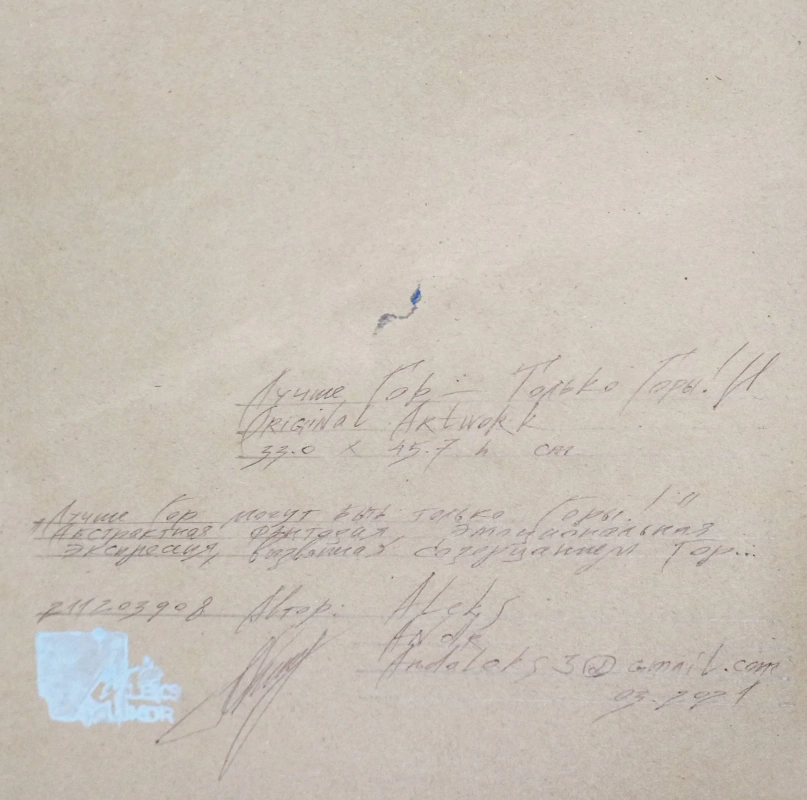 Лучше Гор — Только Горы!"
Original Artwork
33.0 x 45.7 h cm
"Лучше Гор могут быть только Горы!"
Абстрактная фантазия, эмоциональная
экспрессия, вызванная созерцанием Гор...
211203908 Автор: Aleks
Andr
Andaleks3@gmail.com
03.2021